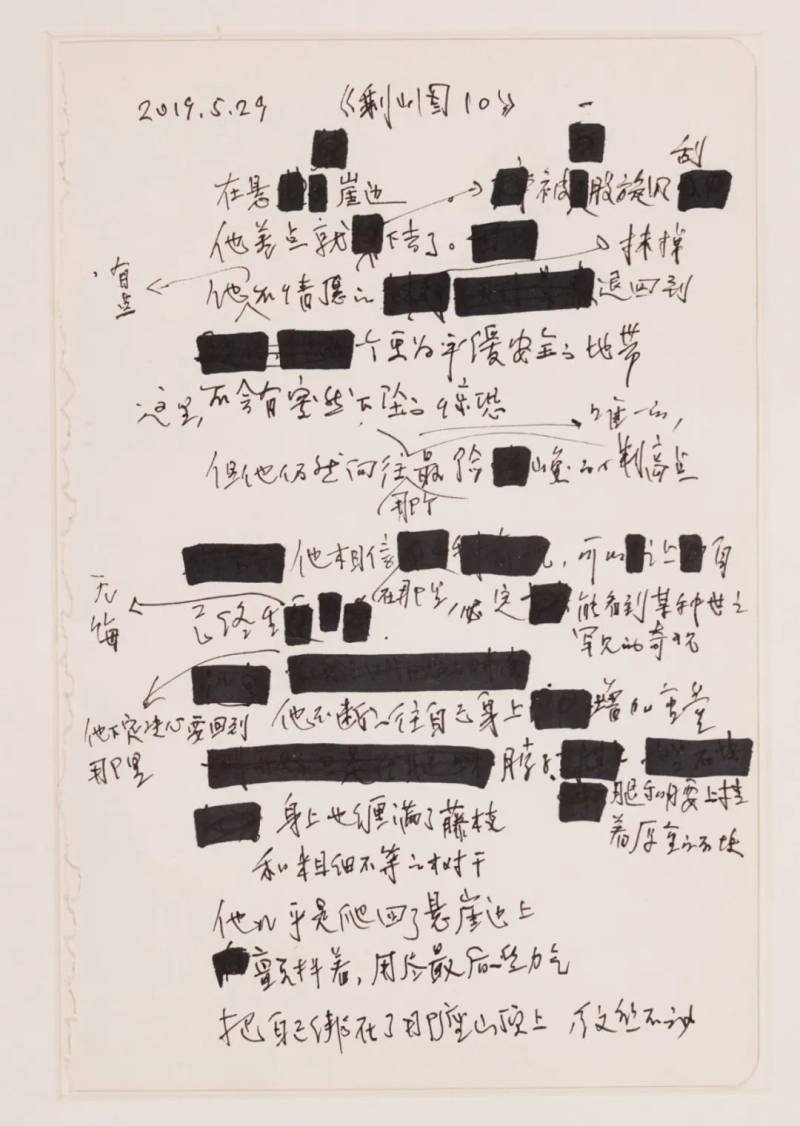 2019.5.29 《剩山图10》
一
刮
在悬 崖边 被 股旋风
他差点就 下去了。 抹掉
有点
他不情愿的 退回到
个更为平缓安全的地带
这里,不会有突然下坠的惊恐
唯一的,
但他仍然向往最险 山峦的 制高点
那个
他相信 可以 让 自
无悔
己终生 在那里,必定 能看到某种世上
罕见的奇观
他下定决心要回到
那里
他不断的往自己身上 增加重量
脖子
腿和腰上挂
着厚重的石块
身上也缠满了藤枝
和粗细不等的树干
他几乎是爬回了悬崖边上
颤抖着,用尽最后一些力气
把自己绑在了那座山顶上 纹丝不动